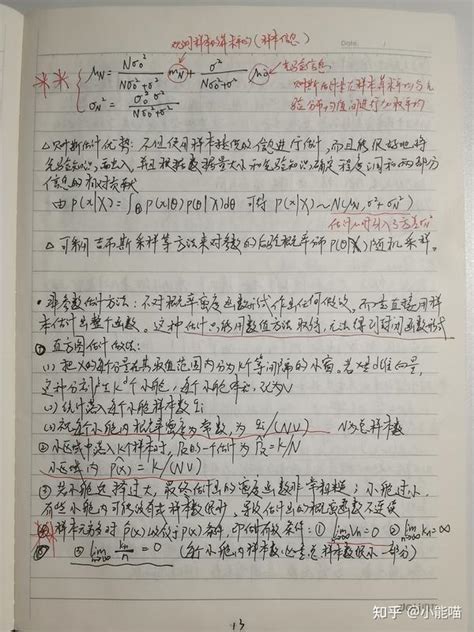 观测样本的算术平均（样本信息）
μN = Nσ0²/(Nσ0²+σ²) mN + σ²/(Nσ0²+σ²) μ0 先验信息
贝叶斯估计是样本算术平均与先
σN² = σ0²σ²/(Nσ0²+σ²) 验分布均值间进行加权平均
△贝叶斯估计优势：不但使用样本提供的信息进行估计，而且能很好地将
先验知识融入，并且根据数据量大小和先验知识确定程度调和两部分
信息的相对贡献
由 p(x|X)=∫θ p(x|θ)p(θ|X)dθ 可得 p(x|X)~N(μN, σ²+σN²)
△可利用吉布斯采样等方法来对参数的后验概率分布 p(θ|X) 随机采样。
•非参数估计方法：不对概率密度函数形式作出任何假设，而是直接用样
本估计出整个函数。这种估计只能用数值方法取得，无法得到封闭函数形式
①直方图估计做法：
(1) 把x的每个分量在其取值范围内分为k个等间隔的小窗。若x是d维向量，
这种分割产生k^d个小舱，每个小舱体积，记为V
(2) 统计落入每个小舱样本数qi
(3) 视每个小舱内概率密度为常数，为 qi/(NV) N为总样本数
②小区域中落入k个样本时，PR的一个估计为 P̂R=k/N
小区域内 p̂(x)=k/(NV)
③若小舱选择过大，最终估计出的密度函数非常粗糙；小舱过小，
有些小舱内可能没有或样本数很少，导致估计出的概率函数不连续
④样本无穷多时 p̂(x)收敛于p(x)条件，即估计有效条件：① lim n→∞ Vn=0 ② lim n→∞ kn=∞
③ lim n→∞ kn/n = 0 （每个小舱内样本数必是总样本数很小一部分）
13
知乎 @小能喵